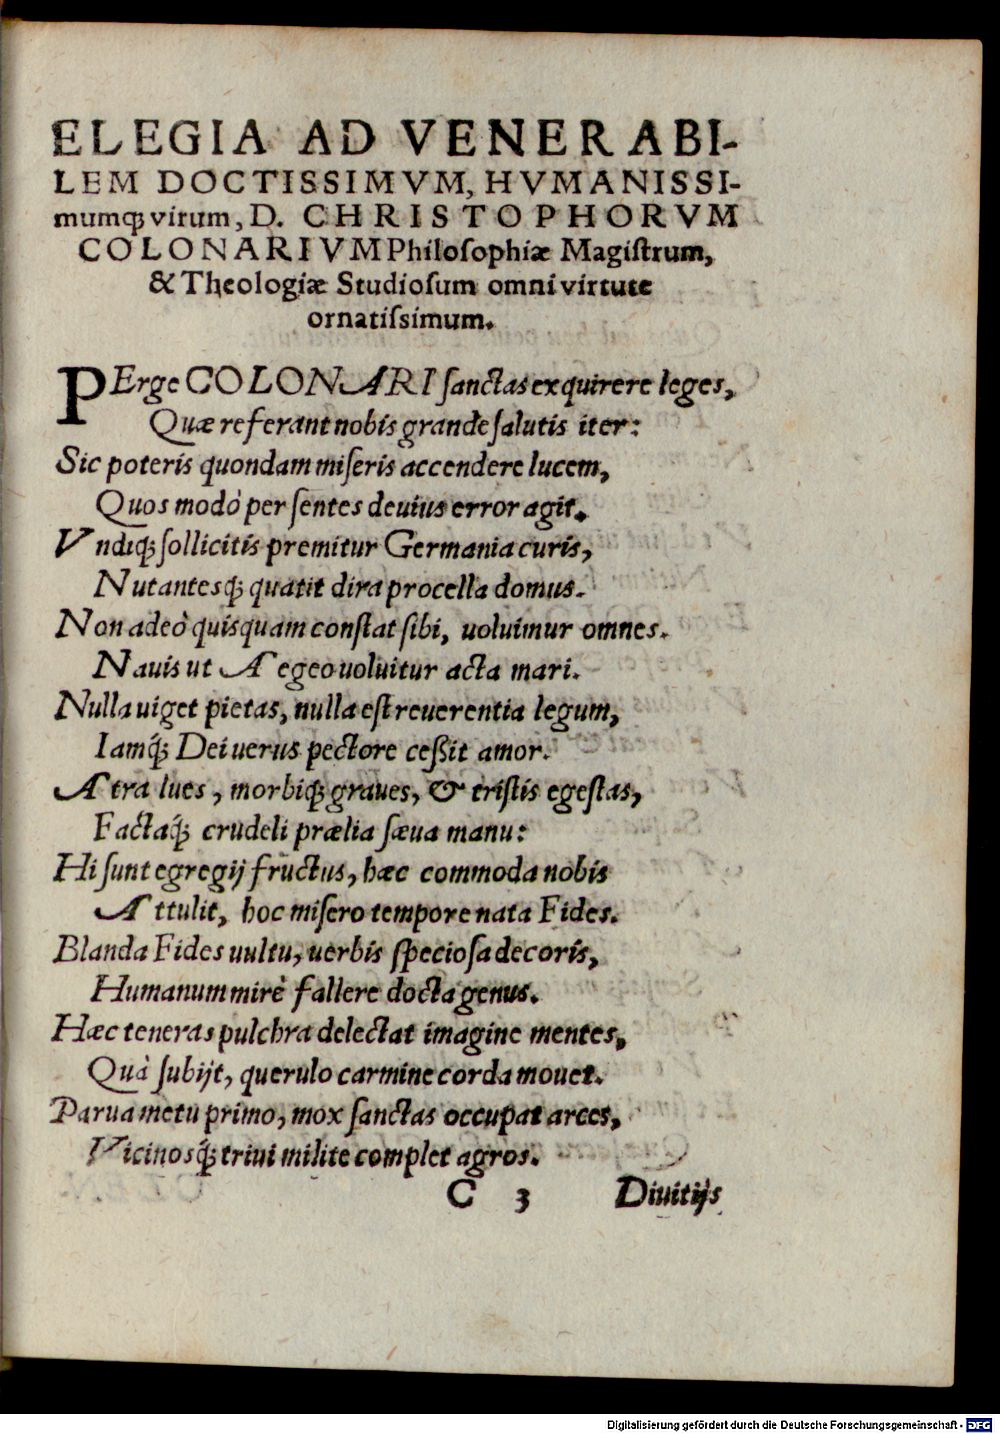 ELEGIA AD VENERABI-
LEM DOCTISSIMVM, HVMANISSI-
mumq́; virum, D. CHRISTOPHORVM
COLONARIVM Philoſophiæ Magiſtrum,
& Theologiæ Studioſum omni virtute
ornatiſsimum.
PErge COLONARI ſanctas exquirere leges,
Quæ referant nobis grande ſalutis iter:
Sic poteris quondam miſeris accendere lucem,
Quos modò per ſentes deuius error agit.
Vndiq́; ſollicitis premitur Germania curis,
Nutantesq́; quatit dira procella domus.
Non adeò quisquam conſtat ſibi, uoluimur omnes.
Nauis ut Aegeo uoluitur acta mari.
Nulla uiget pietas, nulla eſt reuerentia legum,
Iamq́; Dei uerus pectore ceſsit amor.
Atra lues, morbiq́; graues, & triſtis egeſtas,
Factaq́; crudeli prælia ſæua manu:
Hi ſunt egregij fructus, hæc commoda nobis
Attulit, hoc miſero tempore nata Fides.
Blanda Fides uultu, uerbis ſpecioſa decoris,
Humanum mirè fallere docta genus.
Hæc teneras pulchra delectat imagine mentes,
Quà ſubijt, querulo carmine corda mouet.
Parua metu primo, mox ſanctas occupat arces,
Vicinosq́; triui milite complet agros.
C 3 Diuitijs
Digitalisierung gefördert durch die Deutsche Forschungsgemeinschaft - DFG